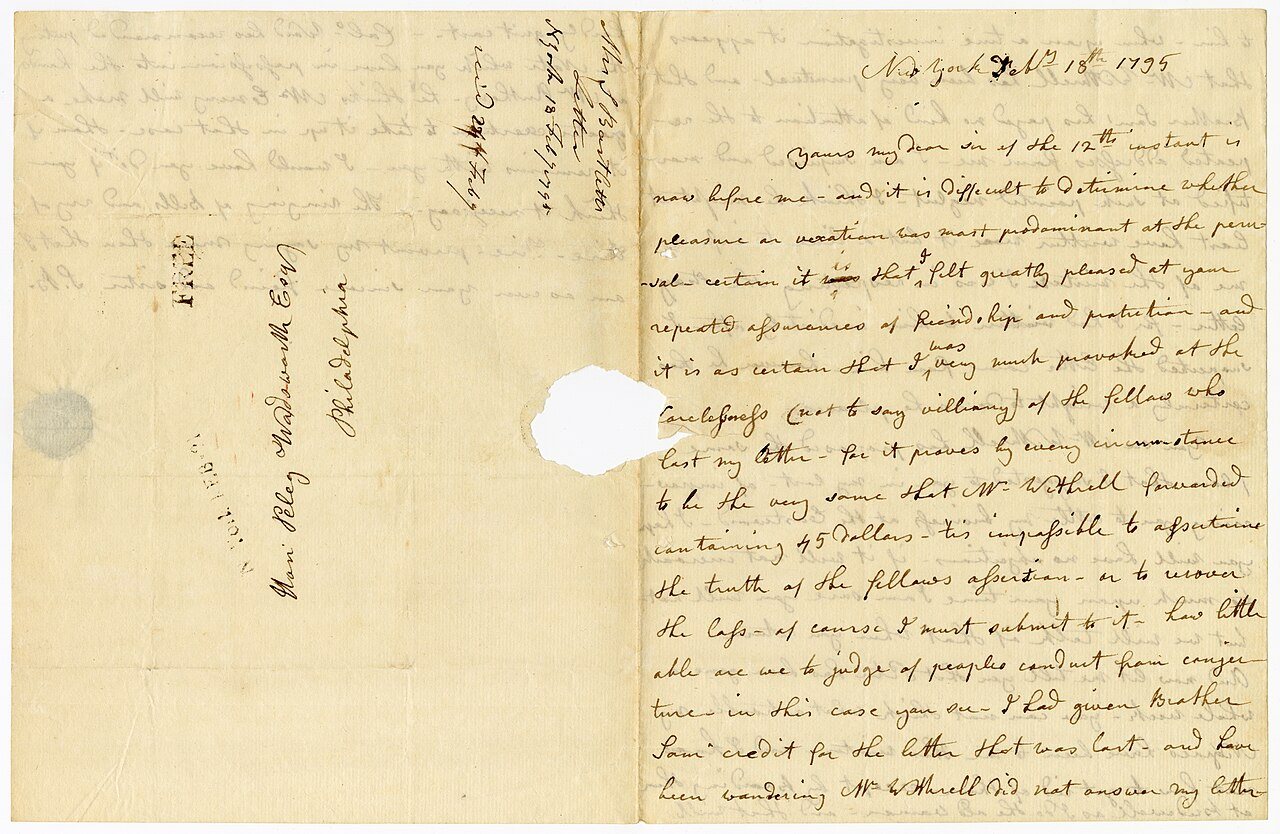 Mrs S Bartlett
Letter
N York 18 Feby 1795
recd 24 Feby
FREE
Hon Peleg Wadsworth Esqr
Philadelphia
New York Feby 18th 1795
Yours my dear sir of the 12th instant is
now before me - and it is difficult to determine whether
pleasure or vexation was most prodominant at the peru-
-sal - certain it is that I felt greatly pleased at your
repeated assurances of friendship and protretion - and
it is as certain that I was very much provoked at the
Carelessness (not to say villiany) of the fellow who
lost my letter - for it proves by every circumstance
to be the very same that Mr Withrell forwarded
containing 45 Dollars - tis impossible to assertaine
the truth of the fellows assertian - or to recover
the loss - of course I must submit to it - how little
able are we to judge of peoples conduct from conjec-
ture - in this case you see - I had given Brother
Sam credit for the letter that was lost - and have
been wondering Mr Withrell did not answer my letter -